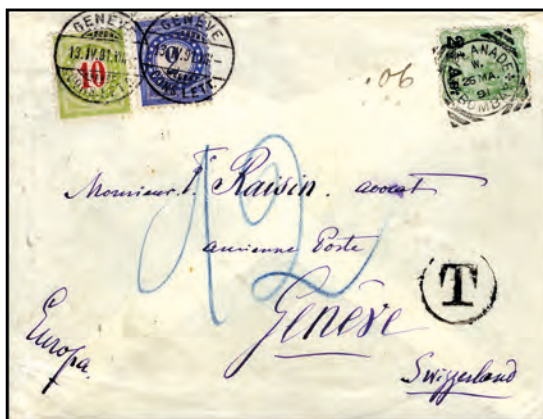 GENÈVE
13.IV.91
10
GENÈVE
13.IV.91
ESPLANADE
W.
26 MA.
91
BOMBAY
06
12
Monsieur F. Raisin. avocat
ancienne Poste
T
Genève
Europa.
Switzerland